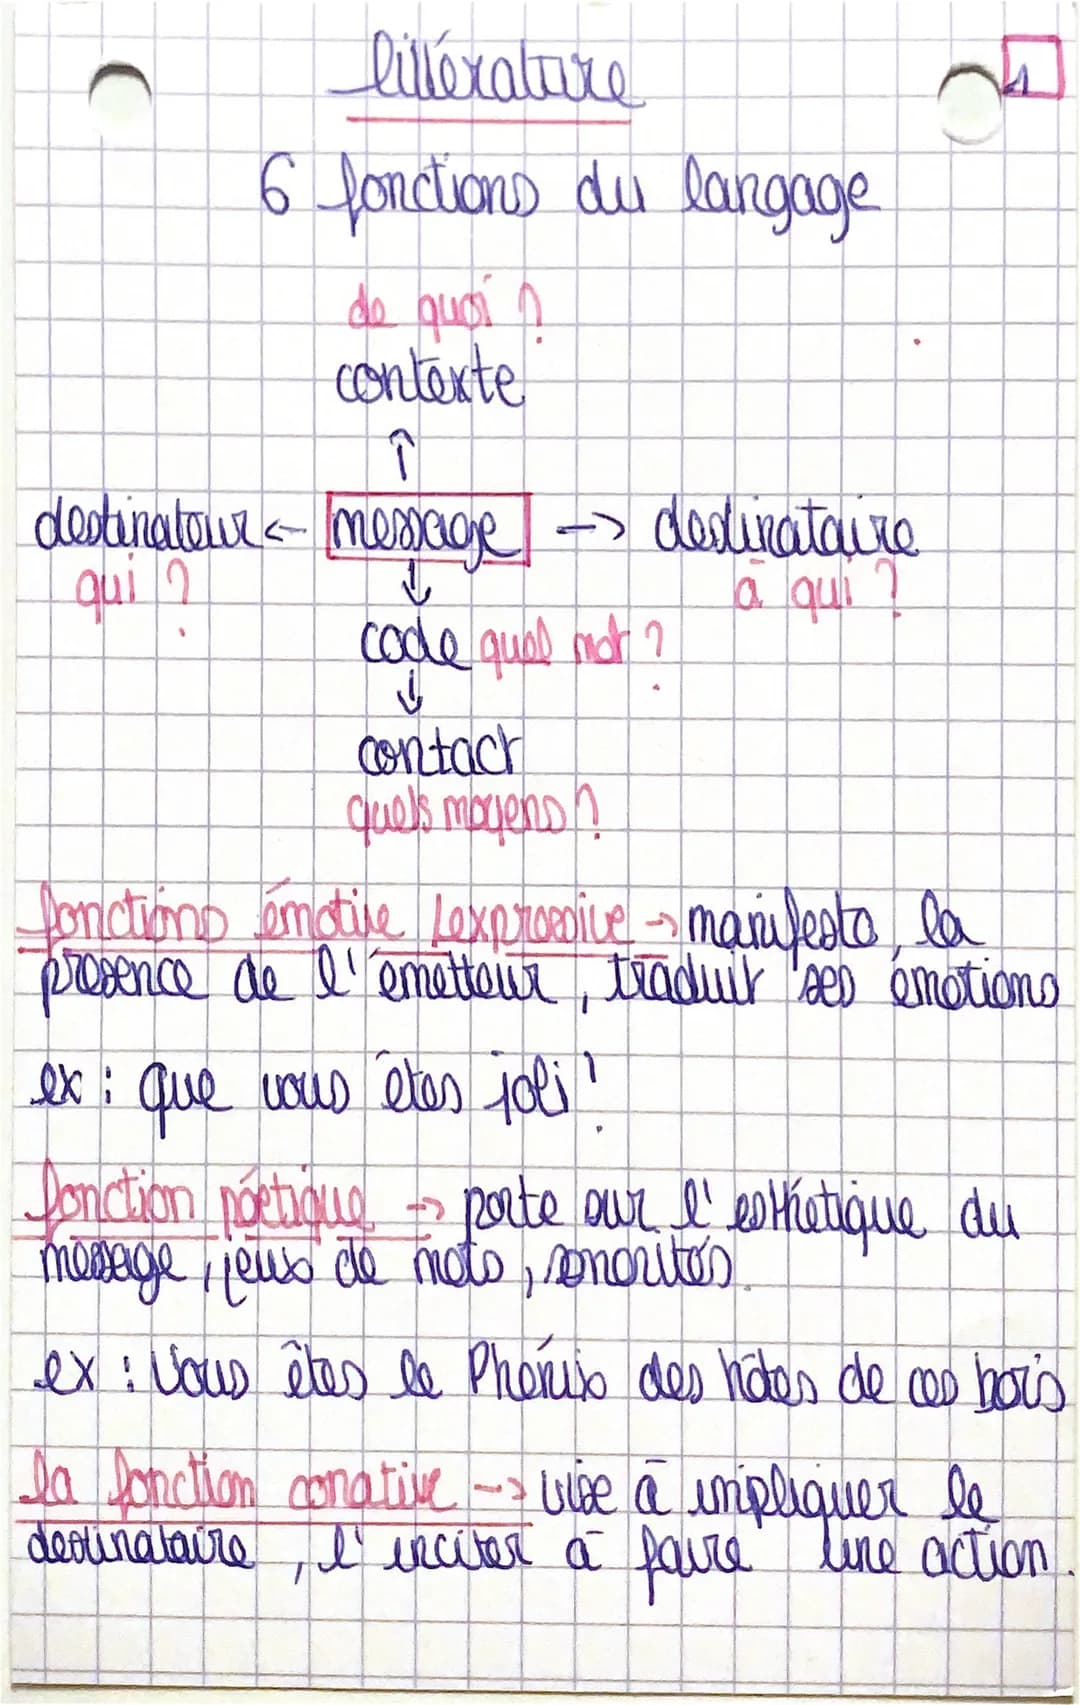 littérature
1
6 fonctions du langage
de quoi ?
contexte
↑
destinateur ← message → destinataire
qui ?
à qui ?
↓
code quel mot ?
↓
contact
quels moyens ?
fonctions émotive / expressive → manifeste la
présence de l'émetteur, traduit ses émotions
ex : que vous êtes joli !
fonction poétique → porte sur l'esthétique du
message, jeux de mots, sonorités.
ex : Vous êtes le Phénix des hôtes de ces bois
la fonction conative → vise à impliquer le
destinataire, l'inciter à faire une action.